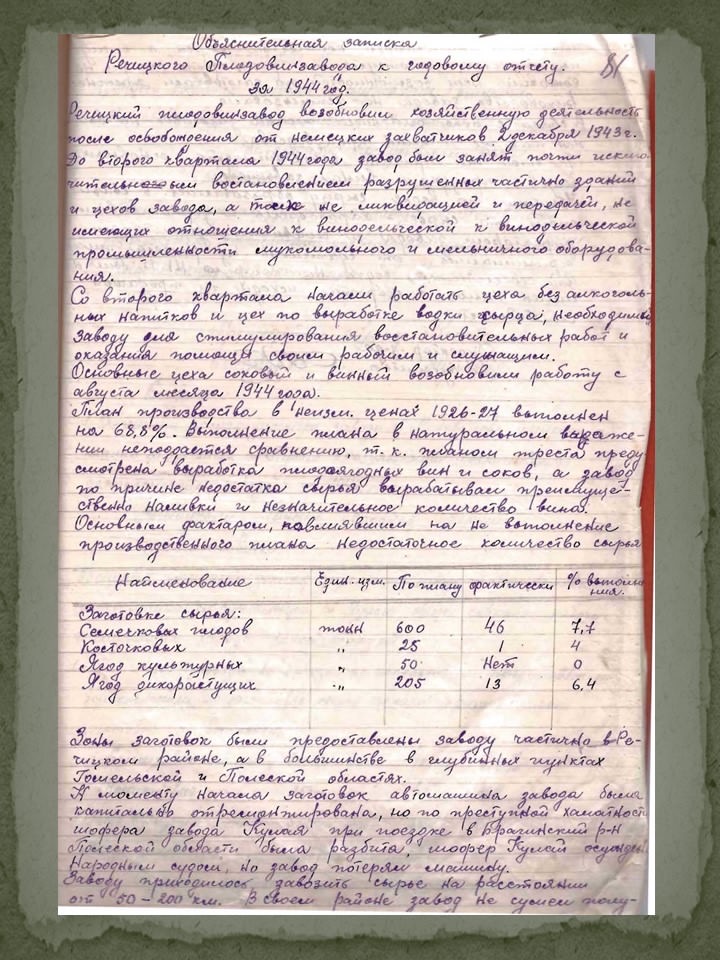 Объяснительная записка
Речицкого Плодовинзавода к годовому отчету.
за 1944 год.
81
Речицкий плодовинзавод возобновил хозяйственную деятельность
после освобождения от немецких захватчиков 2 декабря 1943 г.
До второго квартала 1944 года завод был занят почти исклю-
чительно восстановлением разрушенных частично зданий
и цехов завода, а также ликвидацией и передачей, не
имеющих отношения к винодельческой к винодельческой
промышленности мукомольного и мельничного оборудова-
ния.
Со второго квартала начали работать цеха безалкоголь-
ных напитков и цех по выработке водки сырца, необходимый
заводу для стимулирования восстановительных работ и
оказания помощи своим рабочим и служащим.
Основные цеха соковый и винный возобновили работу с
августа месяца 1944 года.
План производства в неизм. ценах 1926-27 выполнен
на 68,8%. Выполнение плана в натуральном выраже-
нии неподдается сравнению, т.к. планом треста преду
смотрена выработка плодоягодных вин и соков, а завод
по причине недостатка сырья вырабатывал преимуще-
ственно наливки и незначительное количество вина.
Основным фактаром, повлиявшим на не выполнение
производственного плана недостаточное количество сырья
Наименование Един. изм. По плану фактически % выполне
ния.
Заготовке сырья:
Семечковых плодов тонн 600 46 7,7
Косточковых " 25 1 4
Ягод культурных " 50 Нет 0
Ягод дикорастущих " 205 13 6,4
Зоны заготовок были предоставлены заводу частично в Ре-
чицком районе, а в большинстве в глубинных пунктах
Гомельской и Полеской областях.
К моменту начала заготовок автомашина завода была
капитально отремонтирована, но по преступной халатности
шофера завода Кулая при поездке в Брагинский р-н
Полеской области была разбита, шофер Кулай осужден
Народным судом, но завод потерял машину.
Заводу приходилось завозить сырье на расстоянии
от 50 - 200 км. В своем районе завод не сумел полу-